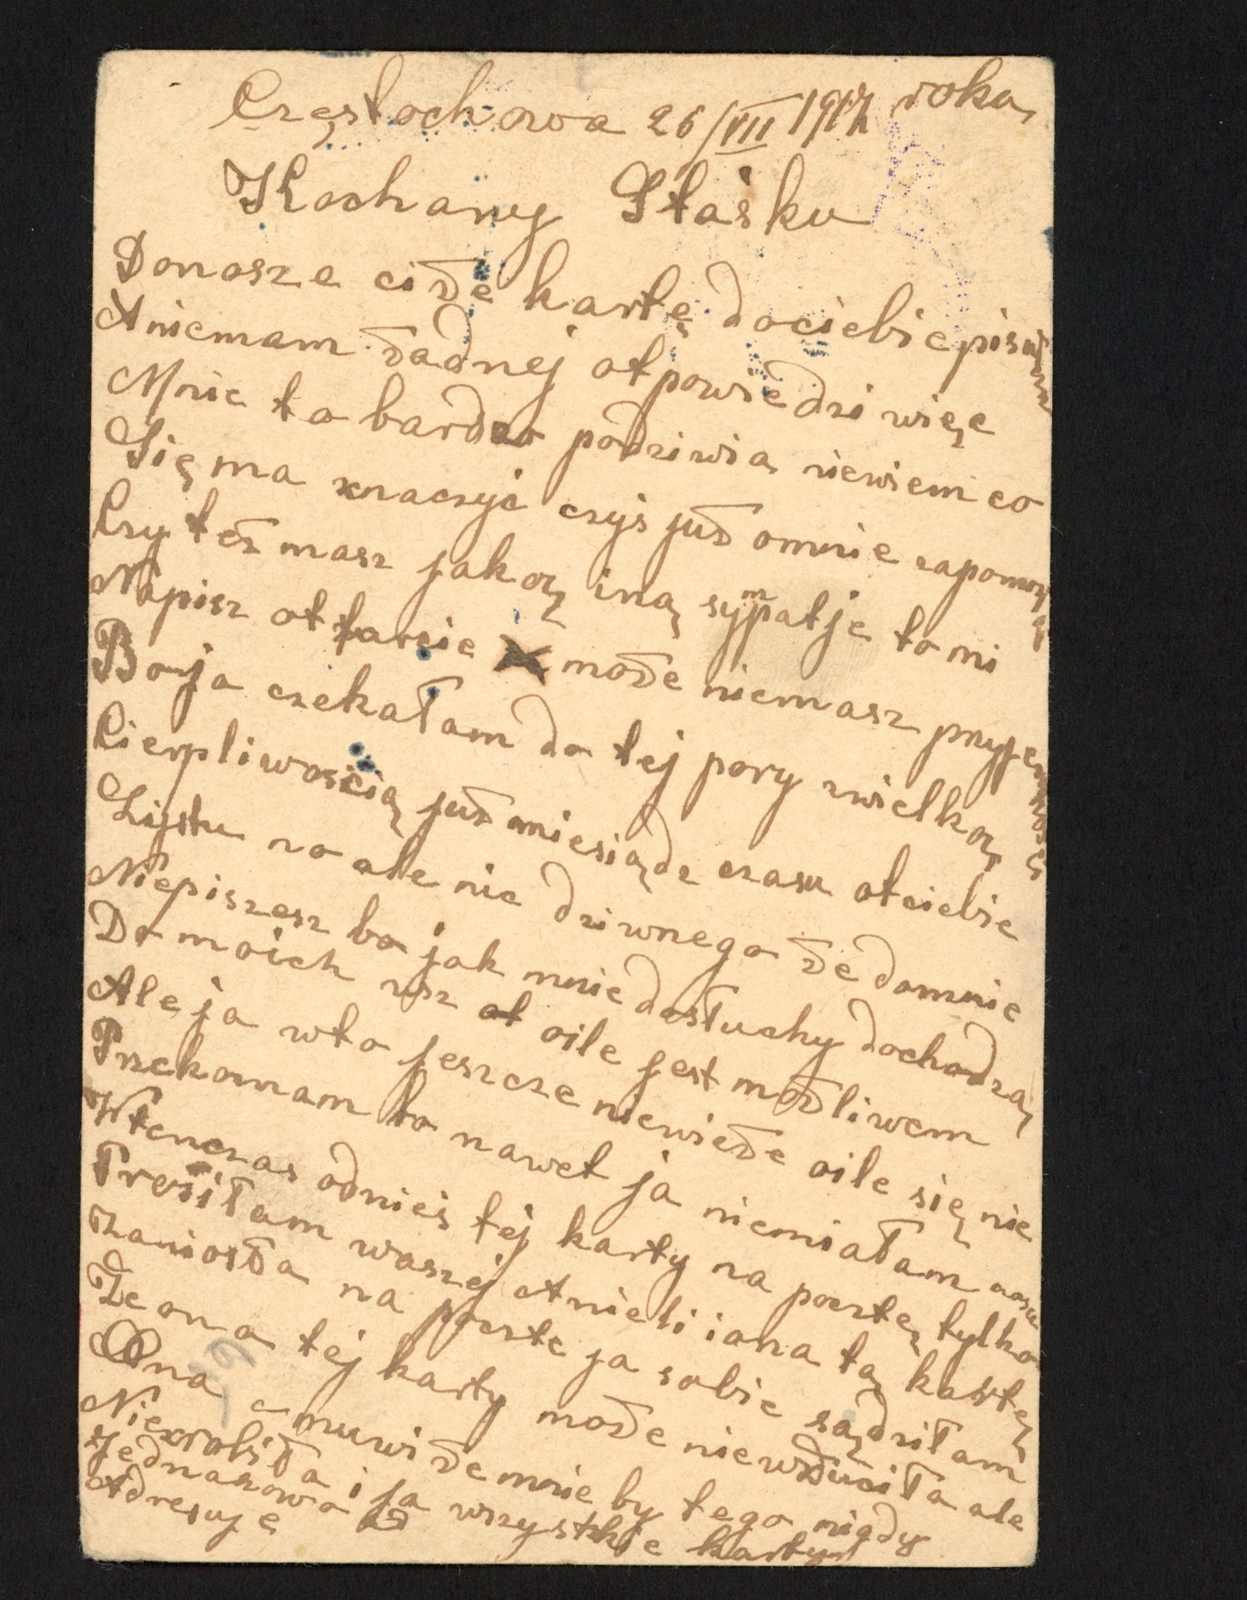 Częstochowa 26/VII 1917 roka,
Kochany Staśku
Donosze ci że kartę dociebie pisałam
A niemam żadnej otpowiedzi więc
Mnie to bardzo podziwia niewiem co
Się ma znaczyć czyś już omnie zapomniał
Czy też masz jakoą iną sympatje to mi
Napisz otfarcie może niemasz pryjemności
Bo ja czekałam do tej pory zwielkoą
Cierpliwością już miesiądz czasu otciebie
Lijstu no ale nic dziwnego że domnie
Niepiszesz bo jak mnie dosłuchy dochodzą
Do moich usz ot oile jest możliwem
Ale ja wto jeszcze niewieże oile się nie
Przekomam to nawet ja niemiałam czasu
Wtenczas odnieś tej karty na pocztę tylko
Prosiłam waszej Anieli iana tą kartę
Zaniosła na poczte ja sobie sądziłam
Że ona tej karty może niewżuciła ale
Ona muwi że mnie by tego nigdy
Niezrobiła i ja wszystkie karty
Jednakowo
Adresuję